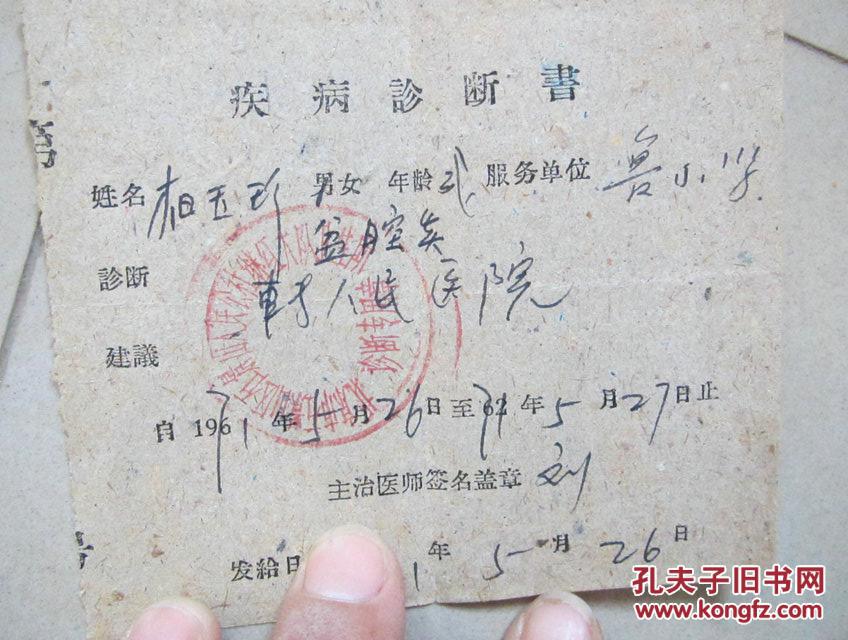 疾病診断書
姓名 相玉珍 男女 年龄 服务单位 鲁小学
盆腔炎
診断
转人民医院
建議
自 1971年5月26日至71年5月27日止
主治医师签名盖章 刘
发給日 1年5月26日
诊断专用章
孔夫子旧书网
www.kongfz.com